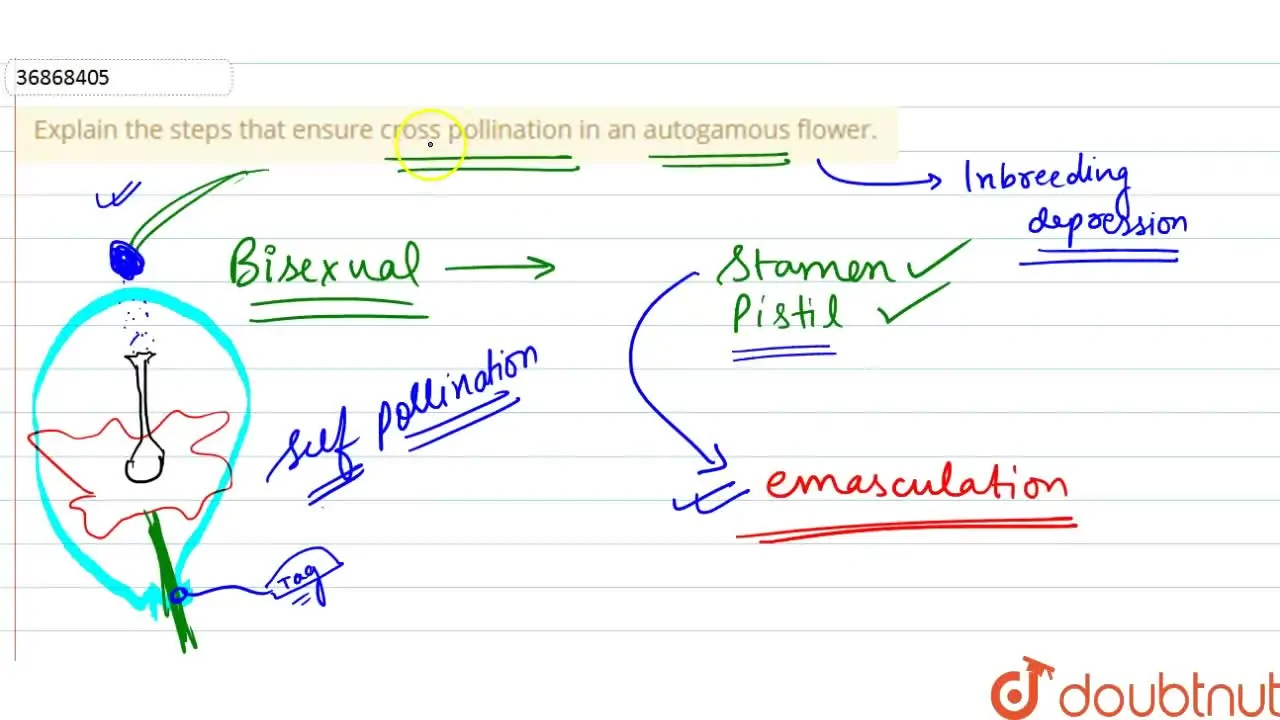 36868405
Explain the steps that ensure cross pollination in an autogamous flower.
Inbreeding
depression
Bisexual
Stamen
Pistil
Self pollination
emasculation
Tag
doubtnut